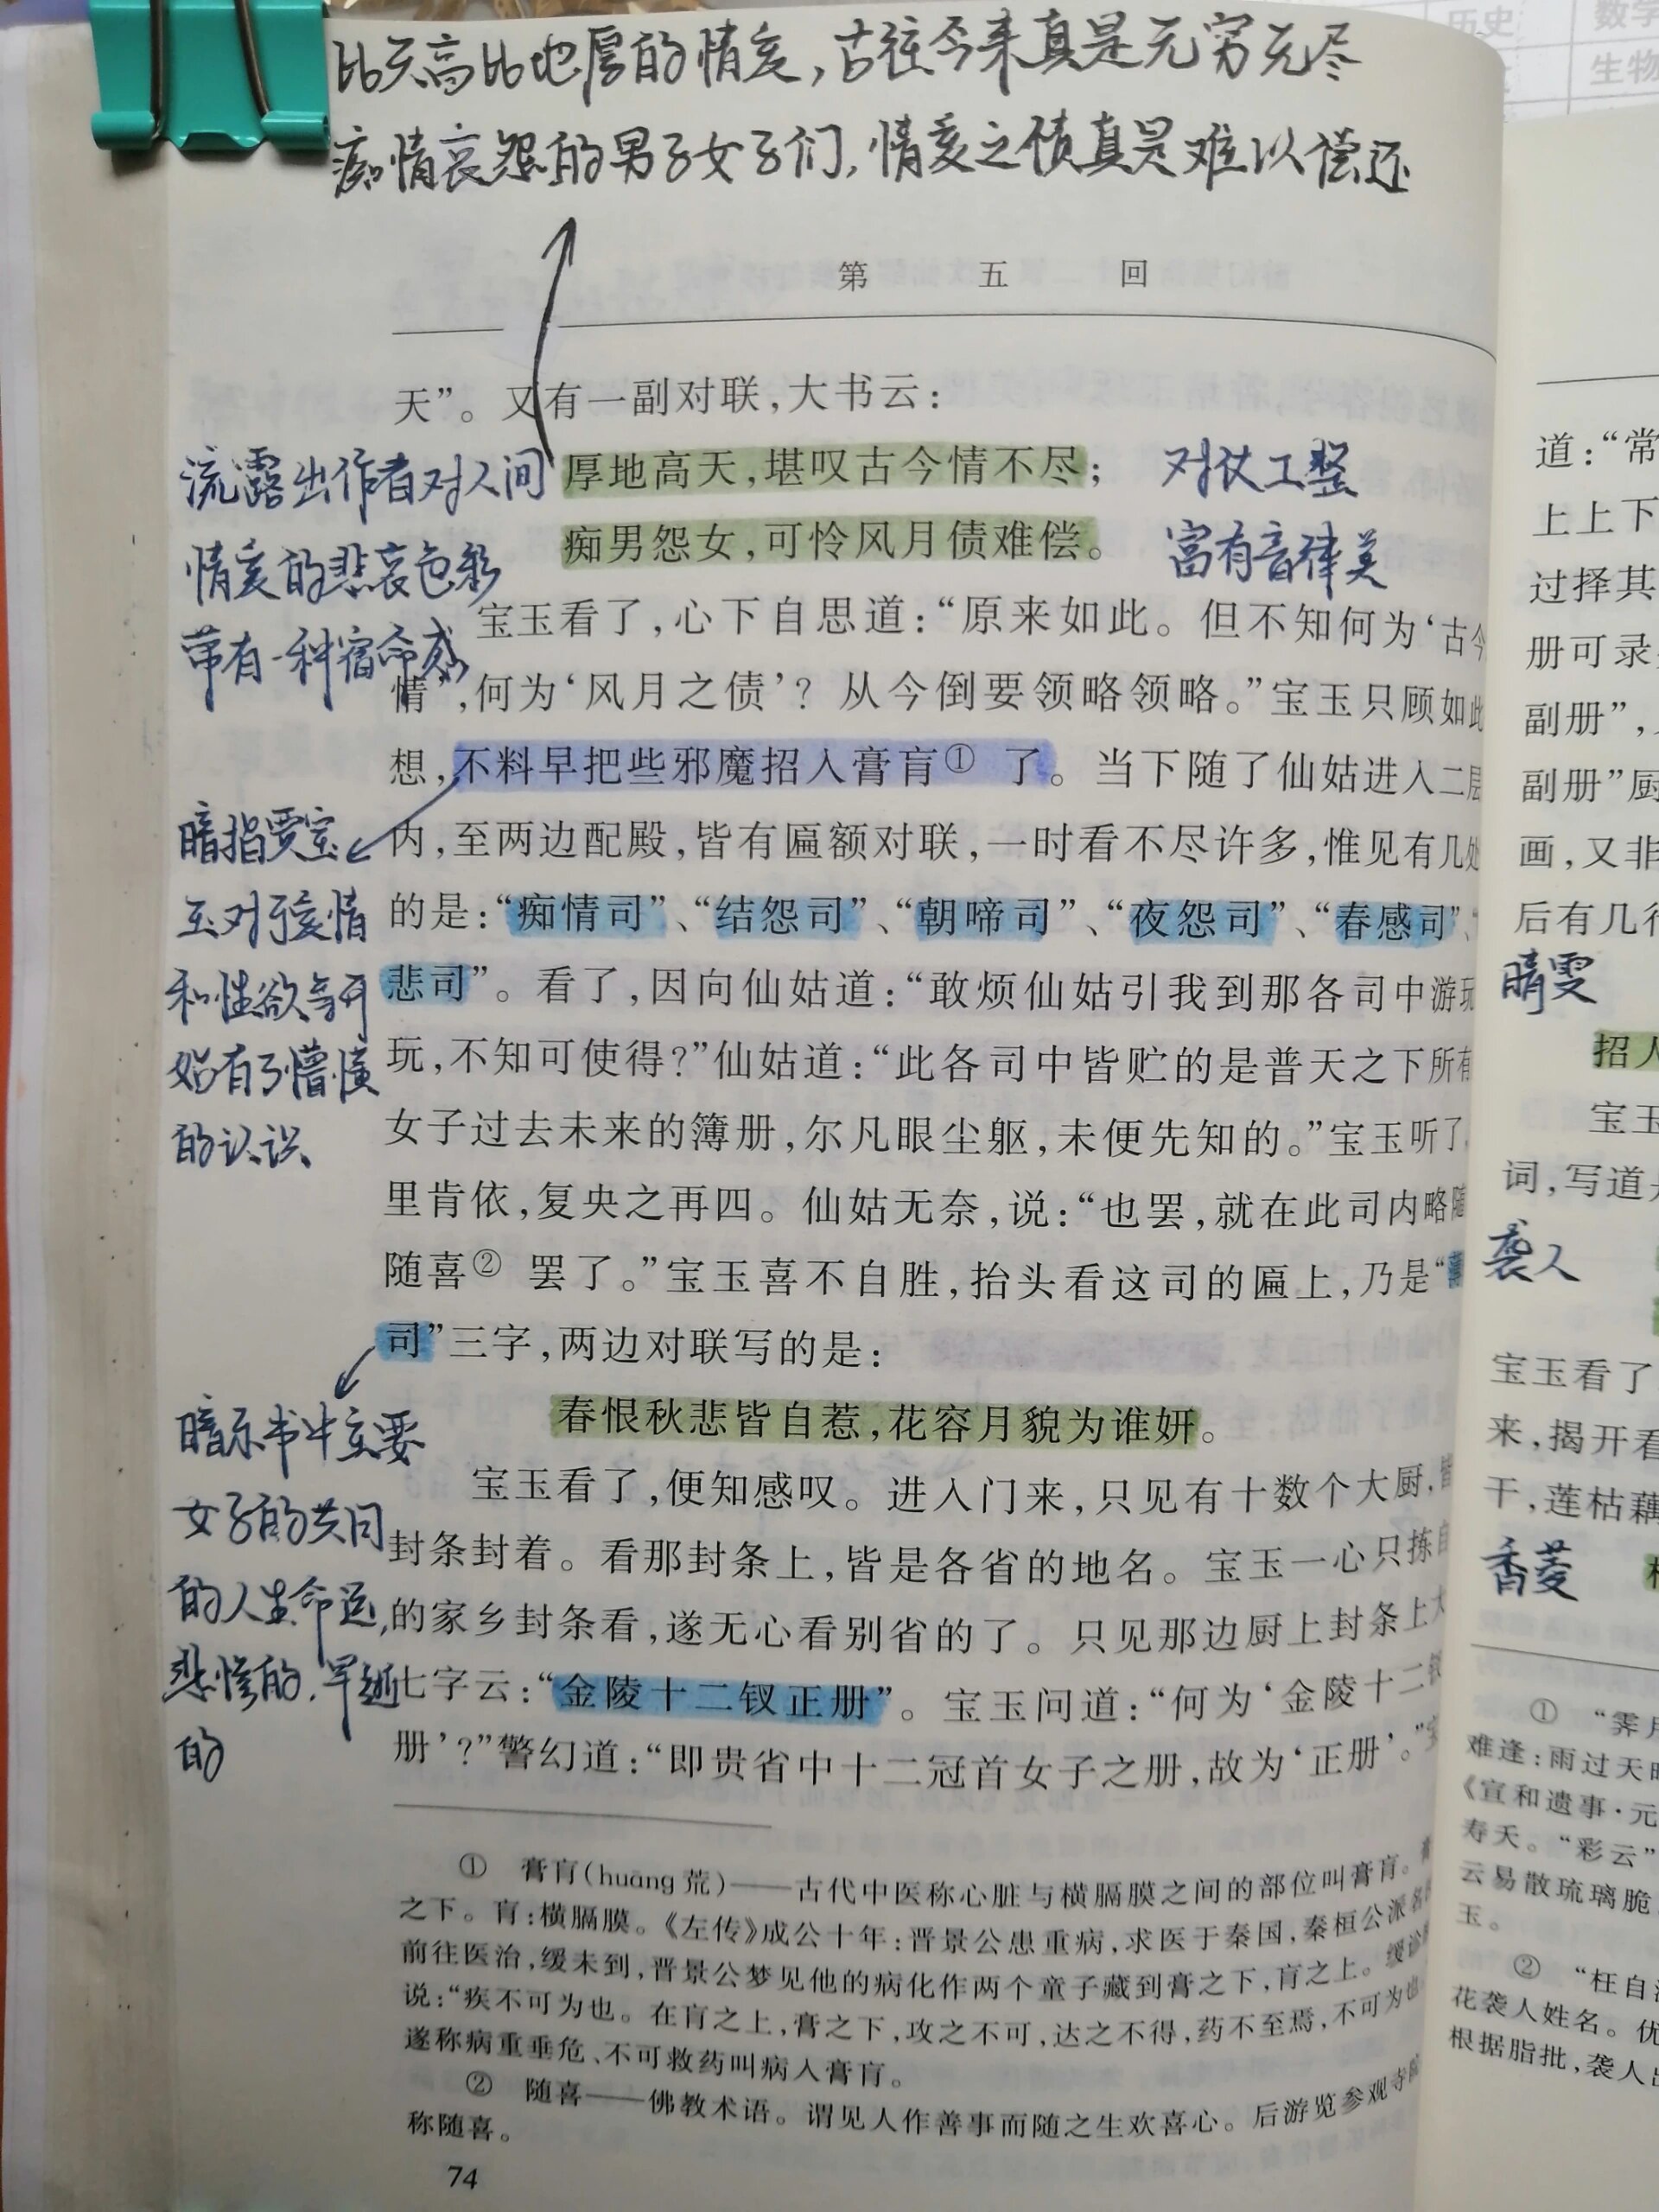 历史
数学
生物
比天高比地厚的情爱，古往今来真是无穷无尽
痴情哀怨的男子女子们，情爱之债真是难以偿还
第五回
天”。又有一副对联，大书云：
厚地高天，堪叹古今情不尽；
痴男怨女，可怜风月债难偿。
对仗工整
富有音律美
流露出作者对人间
情爱的悲哀色彩
带有一种宿命感
宝玉看了，心下自思道：“原来如此。但不知何为‘古今
情’，何为‘风月之债’？从今倒要领略领略。”宝玉只顾如此
想，不料早把些邪魔招入膏肓① 了。当下随了仙姑进入二层
内，至两边配殿，皆有匾额对联，一时看不尽许多，惟见有几处
的是：“痴情司”、“结怨司”、“朝啼司”、“夜怨司”、“春感司”、“
悲司”。看了，因向仙姑道：“敢烦仙姑引我到那各司中游玩
玩，不知可使得？”仙姑道：“此各司中皆贮的是普天之下所有
女子过去未来的簿册，尔凡眼尘躯，未便先知的。”宝玉听了，
里肯依，复央之再四。仙姑无奈，说：“也罢，就在此司内略随
随喜② 罢了。”宝玉喜不自胜，抬头看这司的匾上，乃是“
司”三字，两边对联写的是：
春恨秋悲皆自惹，花容月貌为谁妍。
宝玉看了，便知感叹。进入门来，只见有十数个大厨，皆
封条封着。看那封条上，皆是各省的地名。宝玉一心只拣自
的家乡封条看，遂无心看别省的了。只见那边厨上封条上大
七字云：“金陵十二钗正册”。宝玉问道：“何为‘金陵十二钗
册’？”警幻道：“即贵省中十二冠首女子之册，故为‘正册’。”
暗指贾宝
玉对于爱情
和性欲等开
始有了懵懂
的认识
暗示书中主要
女子的共同
的人生命运，
悲惨的，早逝
的
① 膏肓（huāng 荒）——古代中医称心脏与横膈膜之间的部位叫膏肓。
之下。肓：横膈膜。《左传》成公十年：晋景公患重病，求医于秦国，秦桓公派名
前往医治，缓未到，晋景公梦见他的病化作两个童子藏到膏之下，肓之上。缓诊
说：“疾不可为也。在肓之上，膏之下，攻之不可，达之不得，药不至焉，不可为也
遂称病重垂危、不可救药叫病入膏肓。
② 随喜——佛教术语。谓见人作善事而随之生欢喜心。后游览参观寺院
称随喜。
74
道：“常
上上下
过择其
册可录
副册”，
副册”厨
画，又非
后有几行
晴雯
招人
宝玉
词，写道
袭人
宝玉看了
来，揭开看
干，莲枯藕
香菱
① “霁月
难逢：雨过天晴
《宣和遗事·元
寿夭。“彩云”
云易散琉璃脆
玉。
② “枉自
花袭人姓名。优
根据脂批，袭人出